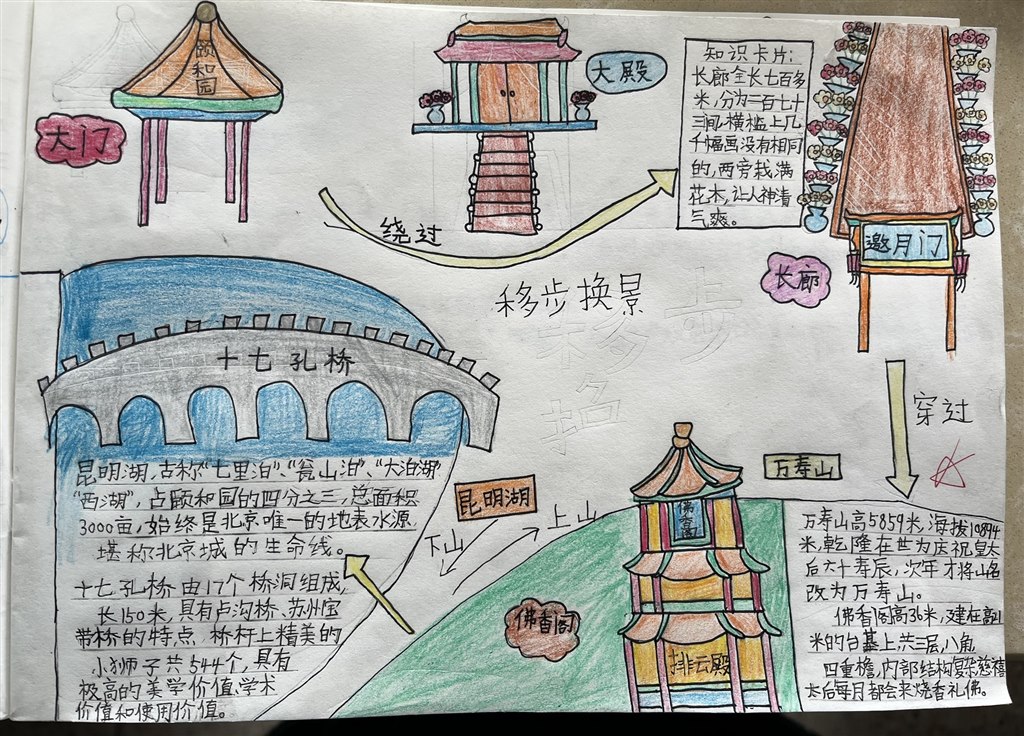 颐和园
大门
大殿
绕过
知识卡片:
长廊全长七百多
米,分为二百七十
三间,横槛上几
千幅画没有相同
的,两旁栽满
花木,让人神清
气爽。
邀月门
长廊
移步换景
穿过
十七孔桥
昆明湖,古称“七里泊”、“瓮山泊”、“大泊湖”
“西湖”,占颐和园的四分之三,总面积
3000亩,始终是北京唯一的地表水源
堪称北京城的生命线。
十七孔桥由17个桥洞组成,
长150米,具有卢沟桥、苏州宝
带桥的特点,桥杆上精美的
小狮子共544个,具有
极高的美学价值、学术
价值和使用价值。
昆明湖
下山
上山
万寿山
佛香阁
佛香阁
排云殿
万寿山高5859米,海拔10894
米,乾隆在世为庆祝皇太
后六十寿辰,次年才将山名
改为万寿山。
佛香阁高36米,建在高21
米的台基上,共三层,八角,
四重檐,内部结构复杂,慈禧
太后每月都会来烧香礼佛。